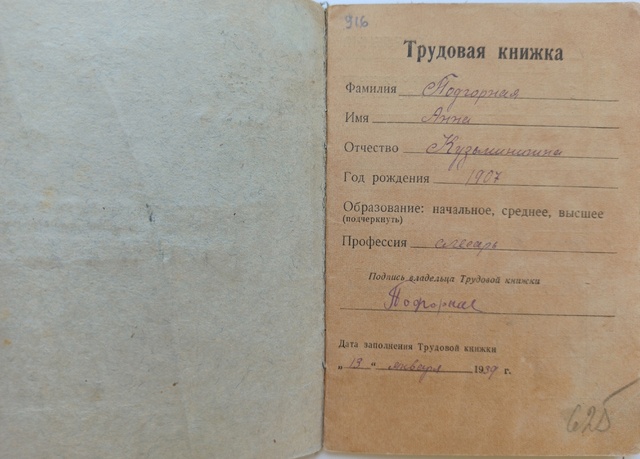 916
Трудовая книжка
Фамилия Подгорная
Имя Анна
Отчество Кузьминична
Год рождения 1907
Образование: начальное, среднее, высшее
(подчеркнуть)
Профессия слесарь
Подпись владельца Трудовой книжки
Подгорная
Дата заполнения Трудовой книжки
„13“ января 1939 г.
625